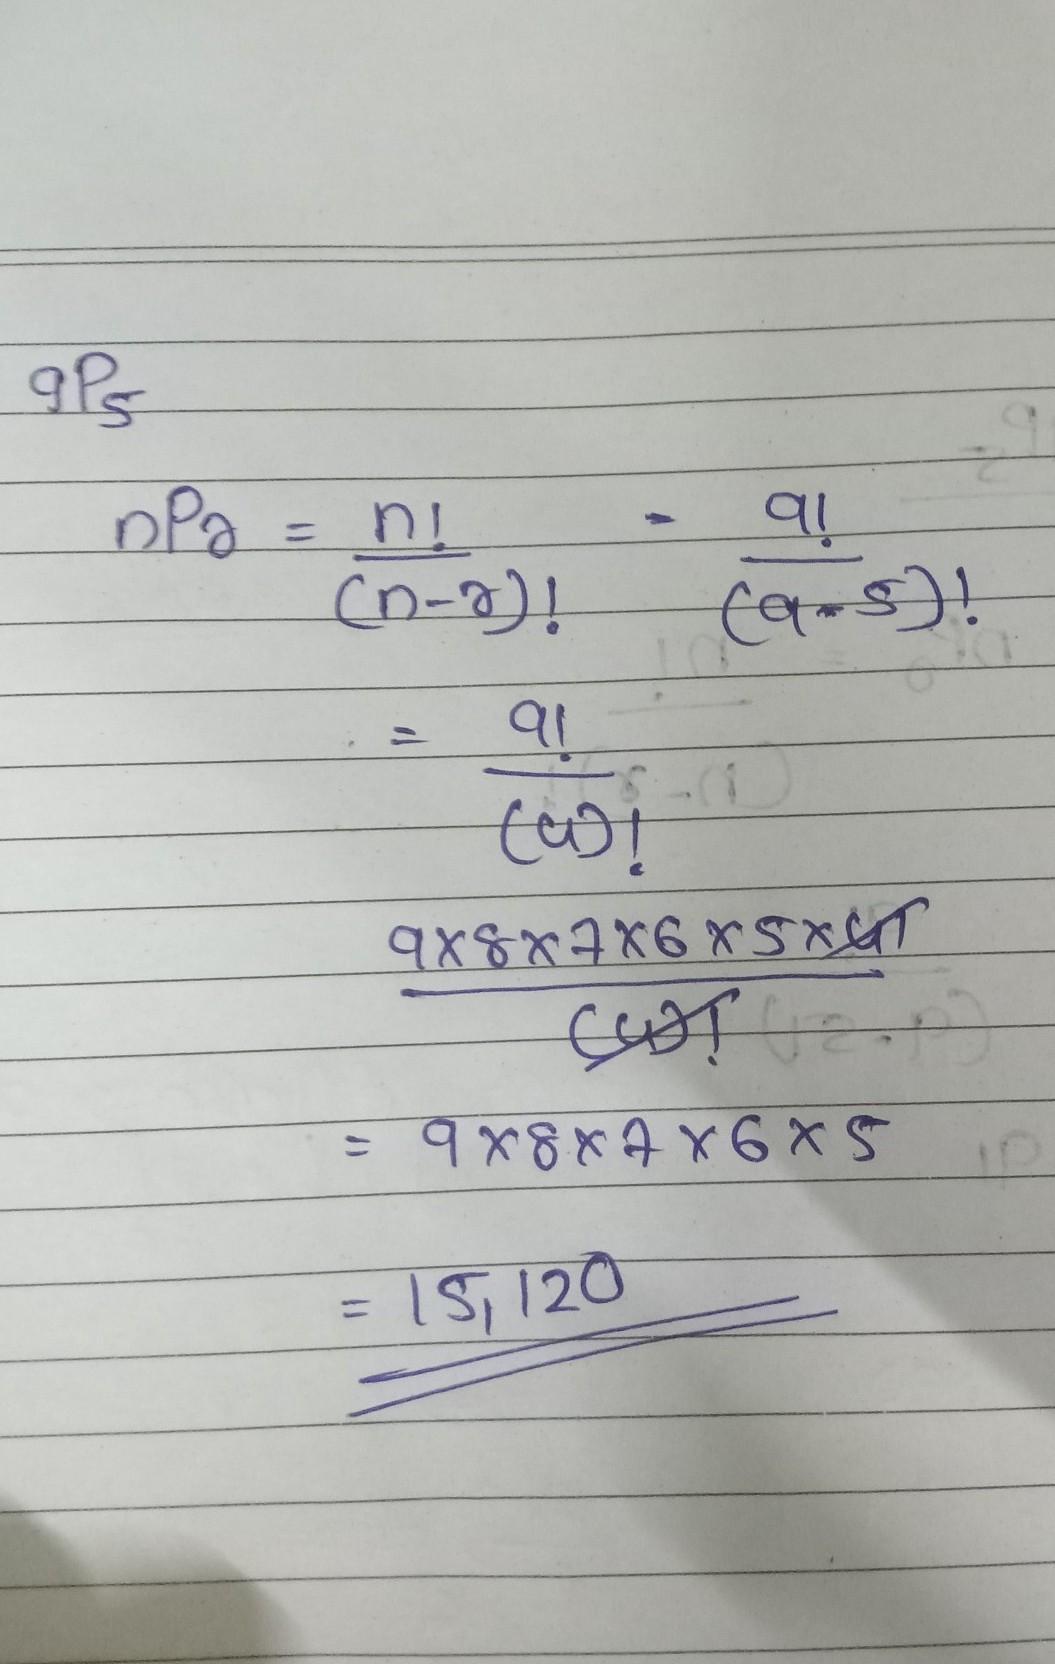 9P5
nPr = n! - 9!
(n-r)! (9-5)!
= 9!
(4)!
9×8×7×6×5×4!
(4)!
= 9×8×7×6×5
= 15,120